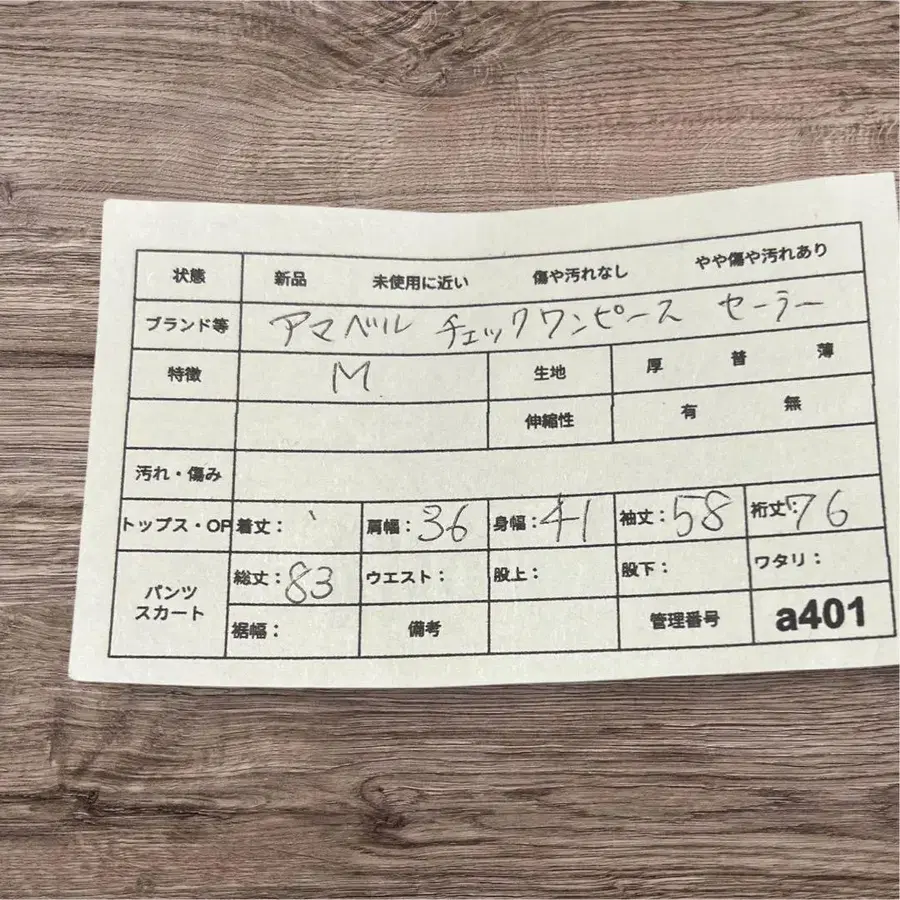 状態 新品 未使用に近い 傷や汚れなし やや傷や汚れあり
ブランド等 アマベル チェックワンピース セーラー
特徴 M 生地 厚 普 薄
伸縮性 有 無
汚れ・傷み
トップス・OP 着丈： 肩幅：36 身幅：41 袖丈：58 裄丈：76
パンツ スカート 総丈：83 ウエスト： 股上： 股下： ワタリ：
裾幅： 備考 管理番号 a401